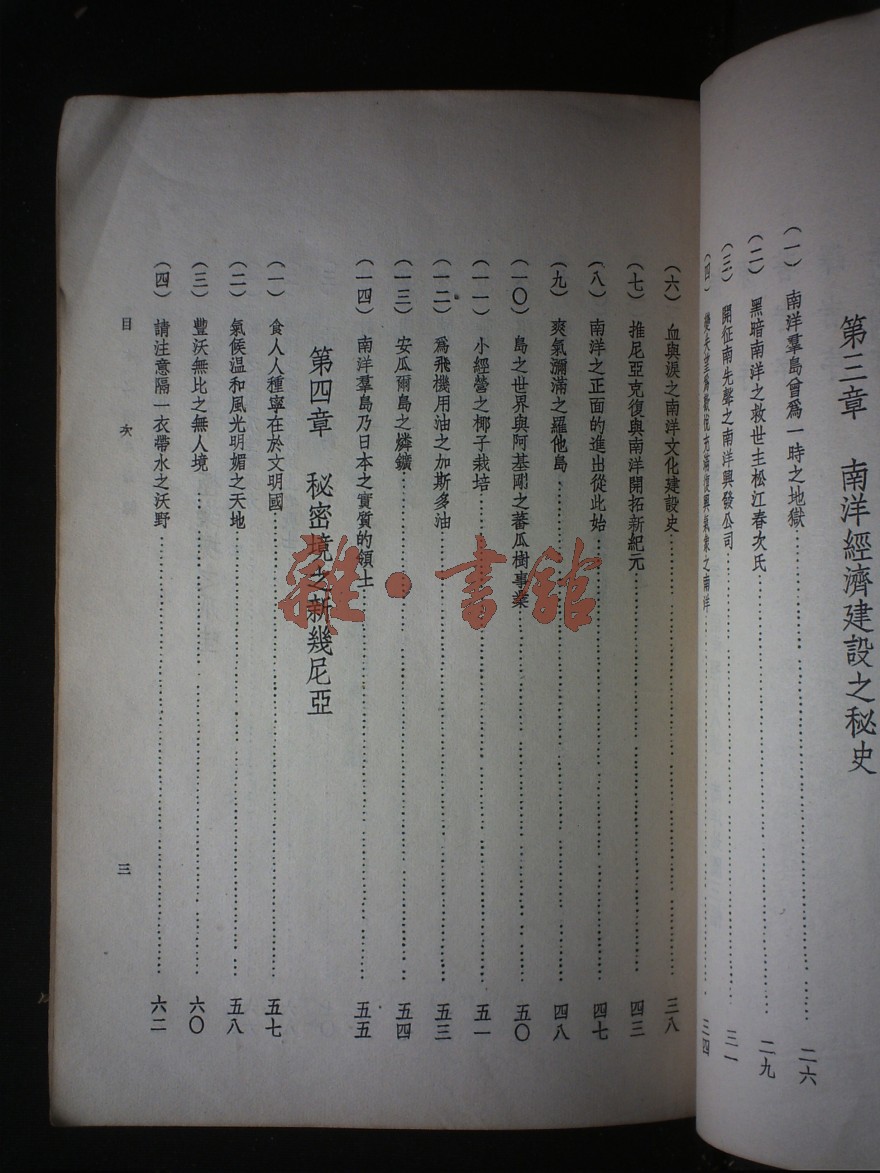 第三章　南洋經濟建設之秘史
(一)　南洋羣島曾爲一時之地獄…………二六
(二)　黑暗南洋之救世主松江春次氏…………二九
(三)　開征南先聲之南洋興發公司…………三一
(四)　變失望爲歡悅方滿復興氣象之南洋…………三四
(六)　血與淚之南洋文化建設史…………三八
(七)　推尼亞克復與南洋開拓新紀元…………四三
(八)　南洋之正面的進出從此始…………四七
(九)　爽氣瀰滿之羅他島…………四八
(一〇)　島之世界與阿基剛之蕃瓜樹事業…………五〇
(一一)　小經營之椰子栽培…………五一
(一二)　爲飛機用油之加斯多油…………五三
(一三)　安瓜爾島之燐鑛…………五四
(一四)　南洋羣島乃日本之實質的領土…………五五
第四章　秘密境之新幾尼亞
(一)　食人人種寧在於文明國…………五七
(二)　氣候溫和風光明媚之天地…………五八
(三)　豐沃無比之無人境…………六〇
(四)　請注意隔一衣帶水之沃野…………六二
目次
三
雜·書館